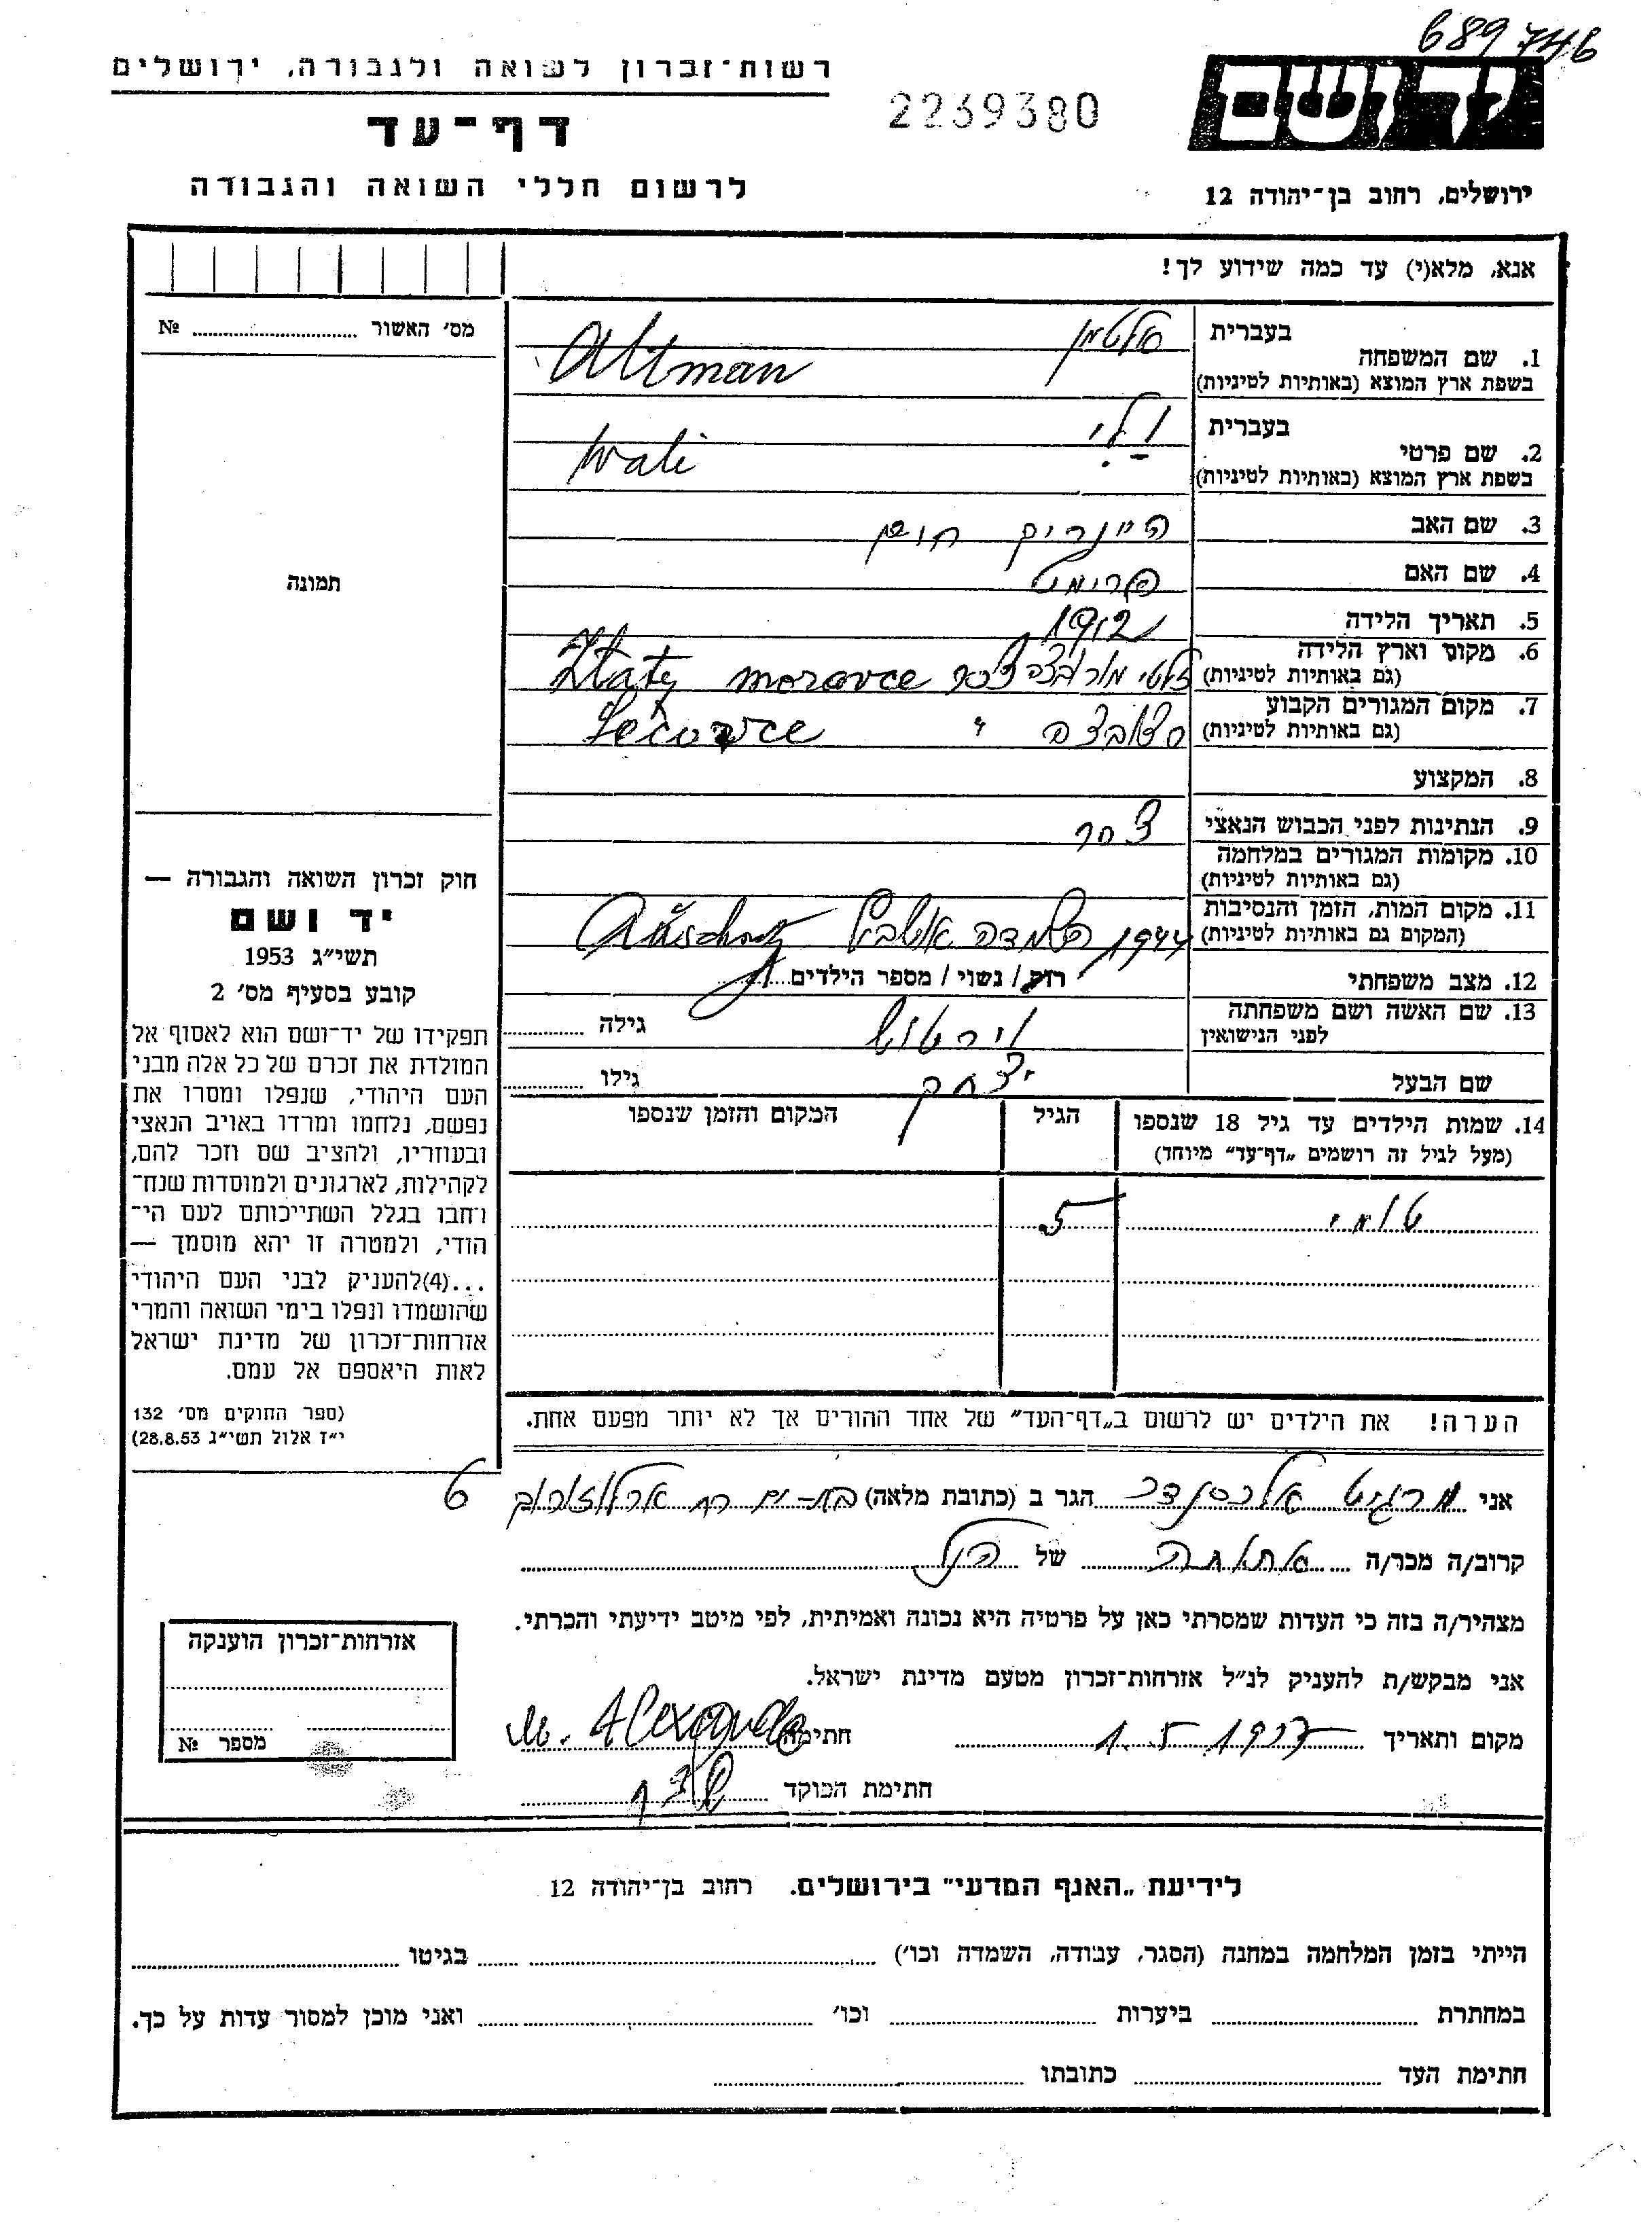 689746
רשות־זכרון לשואה ולגבורה, ירושלים
2239380
יד ושם
דף־עד
לרשום חללי השואה והגבורה
ירושלים, רחוב בן־יהודה 12
אנא, מלא(י) עד כמה שידוע לך!
מס׳ האשור ........ №
1. שם המשפחה
בעברית אלטמן
בשפת ארץ המוצא (באותיות לטיניות) Altman
2. שם פרטי
בעברית ולי
בשפת ארץ המוצא (באותיות לטיניות) Wali
3. שם האב היינריך חיים
4. שם האם
5. תאריך הלידה 1912
6. מקום וארץ הלידה
(גם באותיות לטיניות) זלטי מורבצה צכר Zlaty moravce
7. מקום המגורים הקבוע
(גם באותיות לטיניות) סצובצה " Sečovce
8. המקצוע
9. הנתינות לפני הכבוש הנאצי צכר
10. מקומות המגורים במלחמה
(גם באותיות לטיניות)
11. מקום המות, הזמן והנסיבות
(המקום גם באותיות לטיניות) 1944
12. מצב משפחתי רווק / נשוי / מספר הילדים 1
13. שם האשה ושם משפחתה
לפני הנישואין גילה
שם הבעל יצחק גילו
14. שמות הילדים עד גיל 18 שנספו
(מעל לגיל זה רושמים „דף־עד" מיוחד)
הגיל
המקום והזמן שנספו
טומי 5
הערה! את הילדים יש לרשום ב„דף־העד" של אחד ההורים אך לא יותר מפעם אחת.
תמונה
חוק זכרון השואה והגבורה —
יד ושם
תשי״ג 1953
קובע בסעיף מס׳ 2
תפקידו של יד־ושם הוא לאסוף אל
המולדת את זכרם של כל אלה מבני
העם היהודי, שנפלו ומסרו את
נפשם, נלחמו ומרדו באויב הנאצי
ובעוזריו, ולהציב שם וזכר להם,
לקהילות, לארגונים ולמוסדות שנח־
רחבו בגלל השתייכותם לעם הי־
הודי, ולמטרה זו יהא מוסמך —
...(4)להעניק לבני העם היהודי
שהושמדו ונפלו בימי השואה והמרי
אזרחות־זכרון של מדינת ישראל
לאות היאספם אל עמם.
(ספר החוקים מס׳ 132
י״ז אלול תשי״ג 28.8.53)
אני מרגיט אלכסנדר הגר ב (כתובת מלאה) בת-ים רח ארלוזורוב 6
קרוב/ה מכר/ה אחותה של הנ״ל
מצהיר/ה בזה כי העדות שמסרתי כאן על פרטיה היא נכונה ואמיתית, לפי מיטב ידיעתי והכרתי.
אני מבקש/ת להעניק לנ״ל אזרחות־זכרון מטעם מדינת ישראל.
מקום ותאריך 1.5.1977 חתימה M. Alexander
חתימת הפוקד
אזרחות־זכרון הוענקה
מספר №
לידיעת „האגף המדעי" בירושלים. רחוב בן־יהודה 12
הייתי בזמן המלחמה במחנה (הסגר, עבודה, השמדה וכו׳) בגיטו
במחתרת ביערות וכו׳ ואני מוכן למסור עדות על כך.
חתימת העד כתובתו